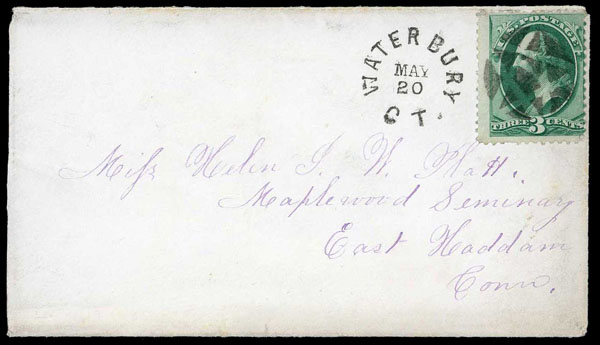 WATERBURY
MAY
20
CT.
U.S. POSTAGE
THREE 3 CENTS
Miss Helen I. W. Platt.
Maplewood Seminary
East Haddam
Conn.